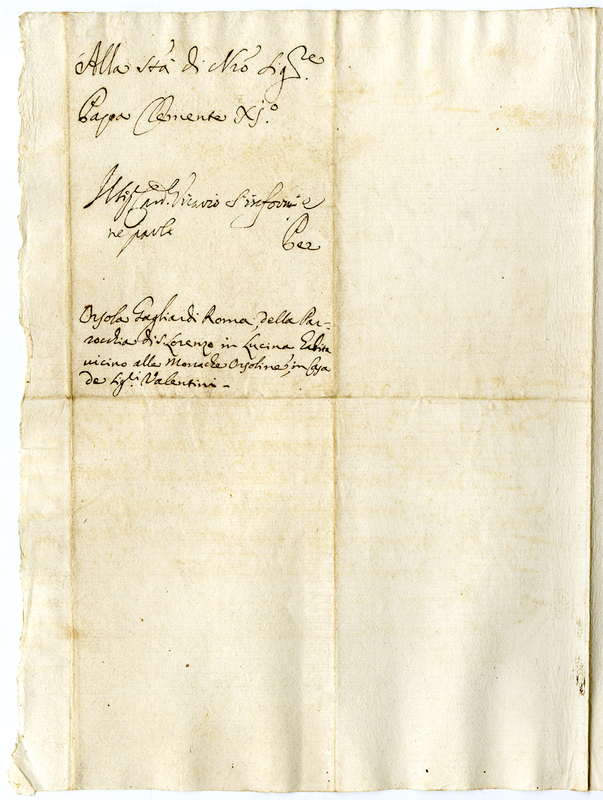 Alla Stà di Nrõ Sig.re
Papa Clemente XJ.o
Card. Vicario s'informi e
ne parli
Per
Orsola Gagliardi Roma, della Par-
rocchia di S. Lorenzo in Lucina habita
vicino alle Monache Orsoline, in Casa
de Sig.ri Valentini -